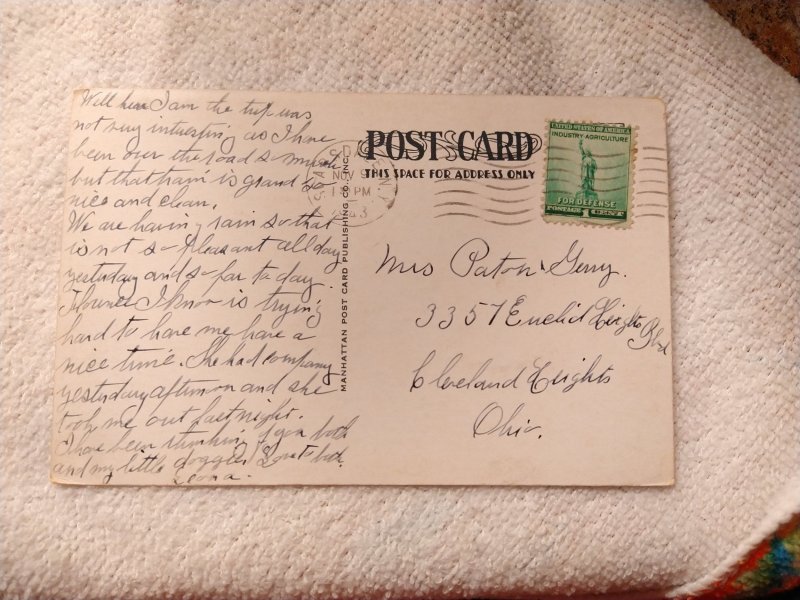 Well here I am the trip was
not very interesting as I have
been over the road so much
but that train is grand so
nice and clean.
We are having rain so that
is not so pleasant all day
yesterday and so far to day.
Florence I know is trying
hard to have me have a
nice time. She had company
yesterday afternoon and she
took me out last night.
I have been thinking of you both
and my little doggies Love to both.
Leona.
MANHATTAN POST CARD PUBLISHING CO., INC.
POST CARD
THIS SPACE FOR ADDRESS ONLY
NOV 9
PM
N.Y.
UNITED STATES OF AMERICA
INDUSTRY-AGRICULTURE
FOR DEFENSE
POSTAGE 1 CENT
Mrs Paton Gerry.
3357 Euclid Heights Blvd
Cleveland Heights
Ohio.